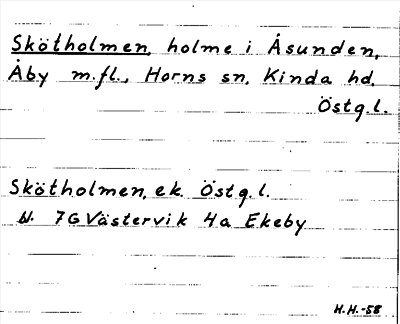 Skötholmen, holme i Åsunden,
Åby m.fl., Horns sn. Kinda hd.
Östg.l.
Skötholmen, ek. Östg.l.
bl. 7G Västervik 4a Ekeby
H.H.-58